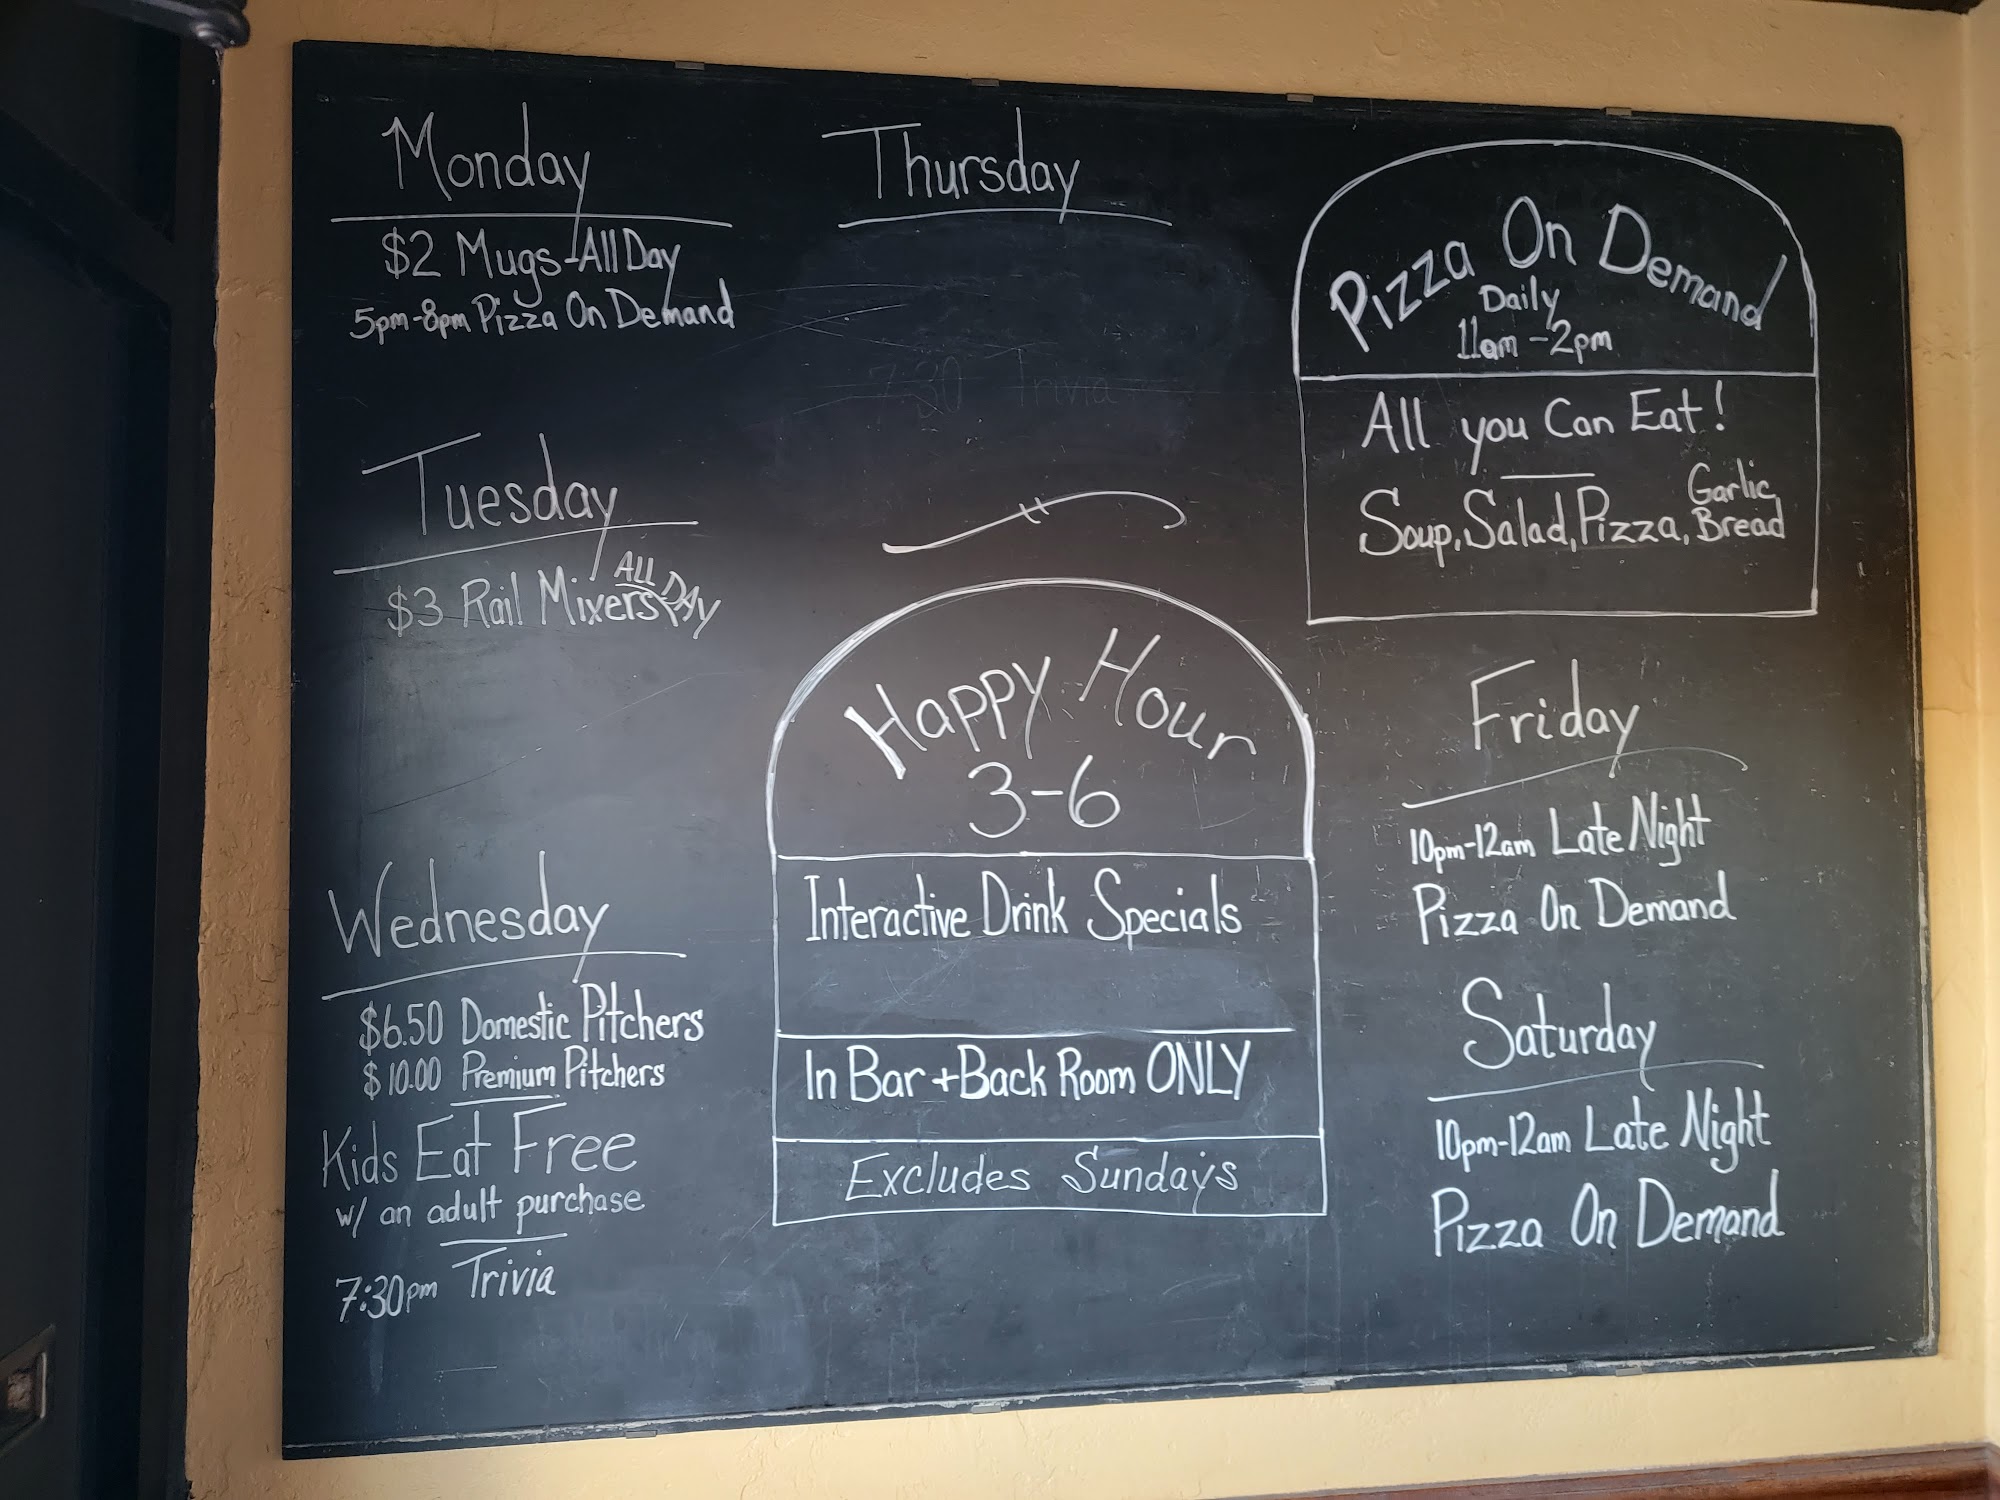 Monday
$2 Mugs-All Day
5pm-8pm Pizza On Demand
Tuesday
$3 Rail Mixers ALL DAY
Wednesday
$6.50 Domestic Pitchers
$10.00 Premium Pitchers
Kids Eat Free
w/ an adult purchase
7:30pm Trivia
Thursday
7:30 Trivia
Happy Hour
3-6
Interactive Drink Specials
In Bar + Back Room ONLY
Excludes Sundays
Pizza On Demand
Daily
11am - 2pm
All you Can Eat!
Soup, Salad, Pizza, Garlic Bread
Friday
10pm-12am Late Night
Pizza On Demand
Saturday
10pm-12am Late Night
Pizza On Demand